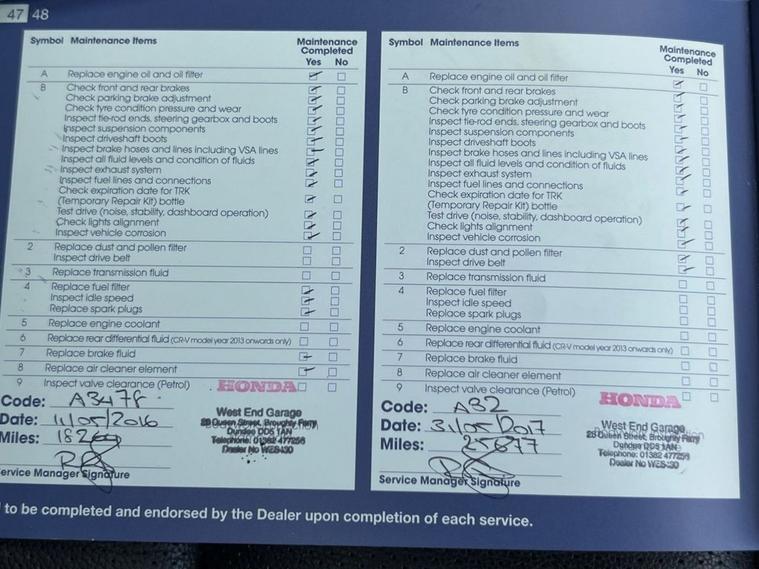 47 48
Symbol Maintenance Items Maintenance Completed
Yes No
A Replace engine oil and oil filter
B Check front and rear brakes
Check parking brake adjustment
Check tyre condition pressure and wear
Inspect tie-rod ends, steering gearbox and boots
Inspect suspension components
Inspect driveshaft boots
Inspect brake hoses and lines including VSA lines
Inspect all fluid levels and condition of fluids
Inspect exhaust system
Inspect fuel lines and connections
Check expiration date for TRK
(Temporary Repair Kit) bottle
Test drive (noise, stability, dashboard operation)
Check lights alignment
Inspect vehicle corrosion
2 Replace dust and pollen filter
Inspect drive belt
3 Replace transmission fluid
4 Replace fuel filter
Inspect idle speed
Replace spark plugs
5 Replace engine coolant
6 Replace rear differential fluid (CR-V model year 2013 onwards only)
7 Replace brake fluid
8 Replace air cleaner element
9 Inspect valve clearance (Petrol)
HONDA
Code: A3478
Date: 11/05/2016
Miles:
West End Garage
Queen Street, Broughty Ferry
Dundee DD5 1AN
Telephone: 01382 477256
Dealer No
ervice Manager Signature
Symbol Maintenance Items Maintenance Completed
Yes No
A Replace engine oil and oil filter
B Check front and rear brakes
Check parking brake adjustment
Check tyre condition pressure and wear
Inspect tie-rod ends, steering gearbox and boots
Inspect suspension components
Inspect driveshaft boots
Inspect brake hoses and lines including VSA lines
Inspect all fluid levels and condition of fluids
Inspect exhaust system
Inspect fuel lines and connections
Check expiration date for TRK
(Temporary Repair Kit) bottle
Test drive (noise, stability, dashboard operation)
Check lights alignment
Inspect vehicle corrosion
2 Replace dust and pollen filter
Inspect drive belt
3 Replace transmission fluid
4 Replace fuel filter
Inspect idle speed
Replace spark plugs
5 Replace engine coolant
6 Replace rear differential fluid (CR-V model year 2013 onwards only)
7 Replace brake fluid
8 Replace air cleaner element
9 Inspect valve clearance (Petrol)
HONDA
Code: AB2
Date: 31/05/2017
Miles: 25677
West End Garage
Queen Street, Broughty Ferry
Dundee DD5 1AN
Telephone: 01382 477256
Dealer No
Service Manager Signature
to be completed and endorsed by the Dealer upon completion of each service.